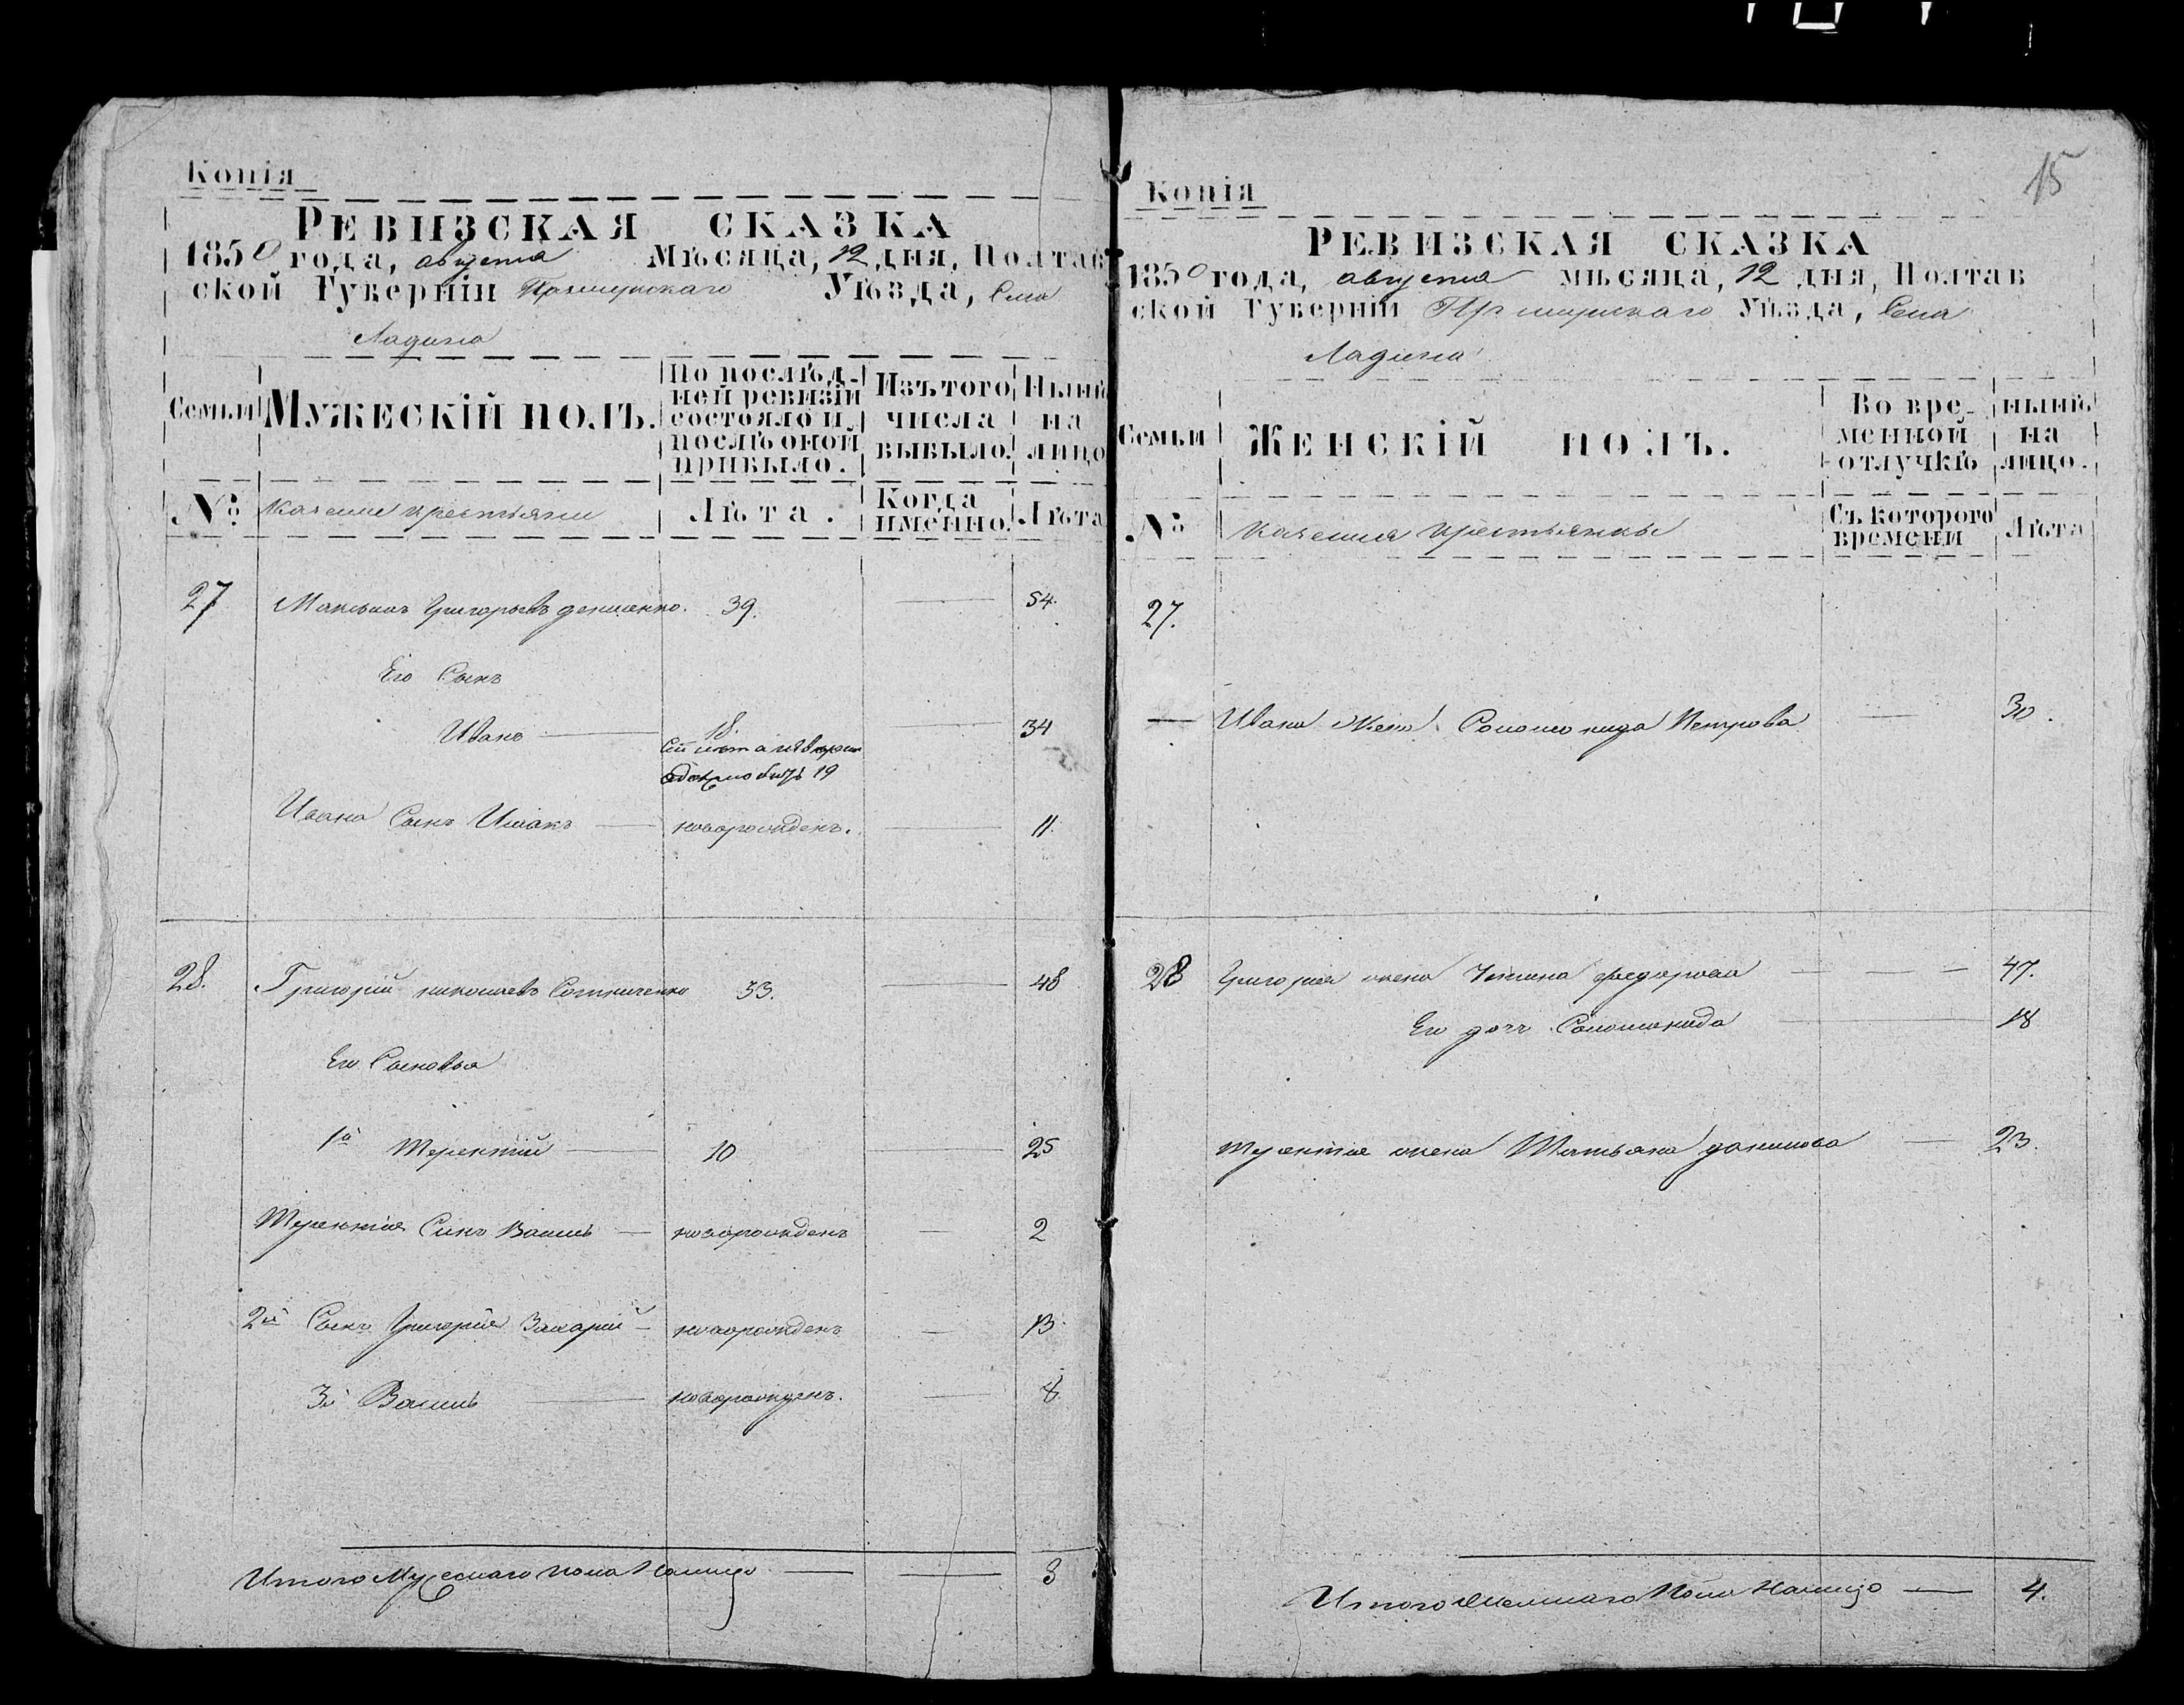 Копія
РЕВИЗСКАЯ СКАЗКА
1850 года, августа Мѣсяца, 12 дня, Полтав
ской Губерніи Прилуцкаго Уѣзда, Села
Ладина
Семьи
МУЖЕСКІЙ ПОЛЪ.
По послѣд-
ней ревизіи
состояло и
послѣ оной
прибыло.
Изъ того
числа
выбыло.
Нынѣ
на
лицо
№
казенные крестьяне
Лѣта.
Когда
именно.
Лѣта
27 Максимъ Григорьевъ 39. 54.
Его Сынъ
Иванъ 18. 34
19
Ивана Сынъ Исаакъ новорожденъ. 11.
28. Григорій Николаевъ Сотниченко 33. 48
Его Сыновья
1й Терентій 10 25
Терентія Синъ Василь новорожденъ 2
2й Сынъ Григорія Захарій новорожденъ 13.
3й Василь новорожденъ. 8.
Итого Мужескаго пола Налицо 8
15
Копія
РЕВИЗСКАЯ СКАЗКА
1850 года, августа мѣсяца, 12 дня, Полтав
ской Губерніи Прилуцкаго Уѣзда, Села
Ладина
Семьи
ЖЕНСКІЙ ПОЛЪ.
Во вре-
менной
отлучкѣ
нынѣ
на
лицо.
№
казенныя крестьянки
Съ котораго
времени
Лѣта
27.
Ивана Жена Соломонида Петрова 30.
28 Григорія жена Устина федорова 47.
Его дочь Соломонида 18
Терентія жена Татьяна данилова 23.
Итого Женскаго Пола Налицо 4.